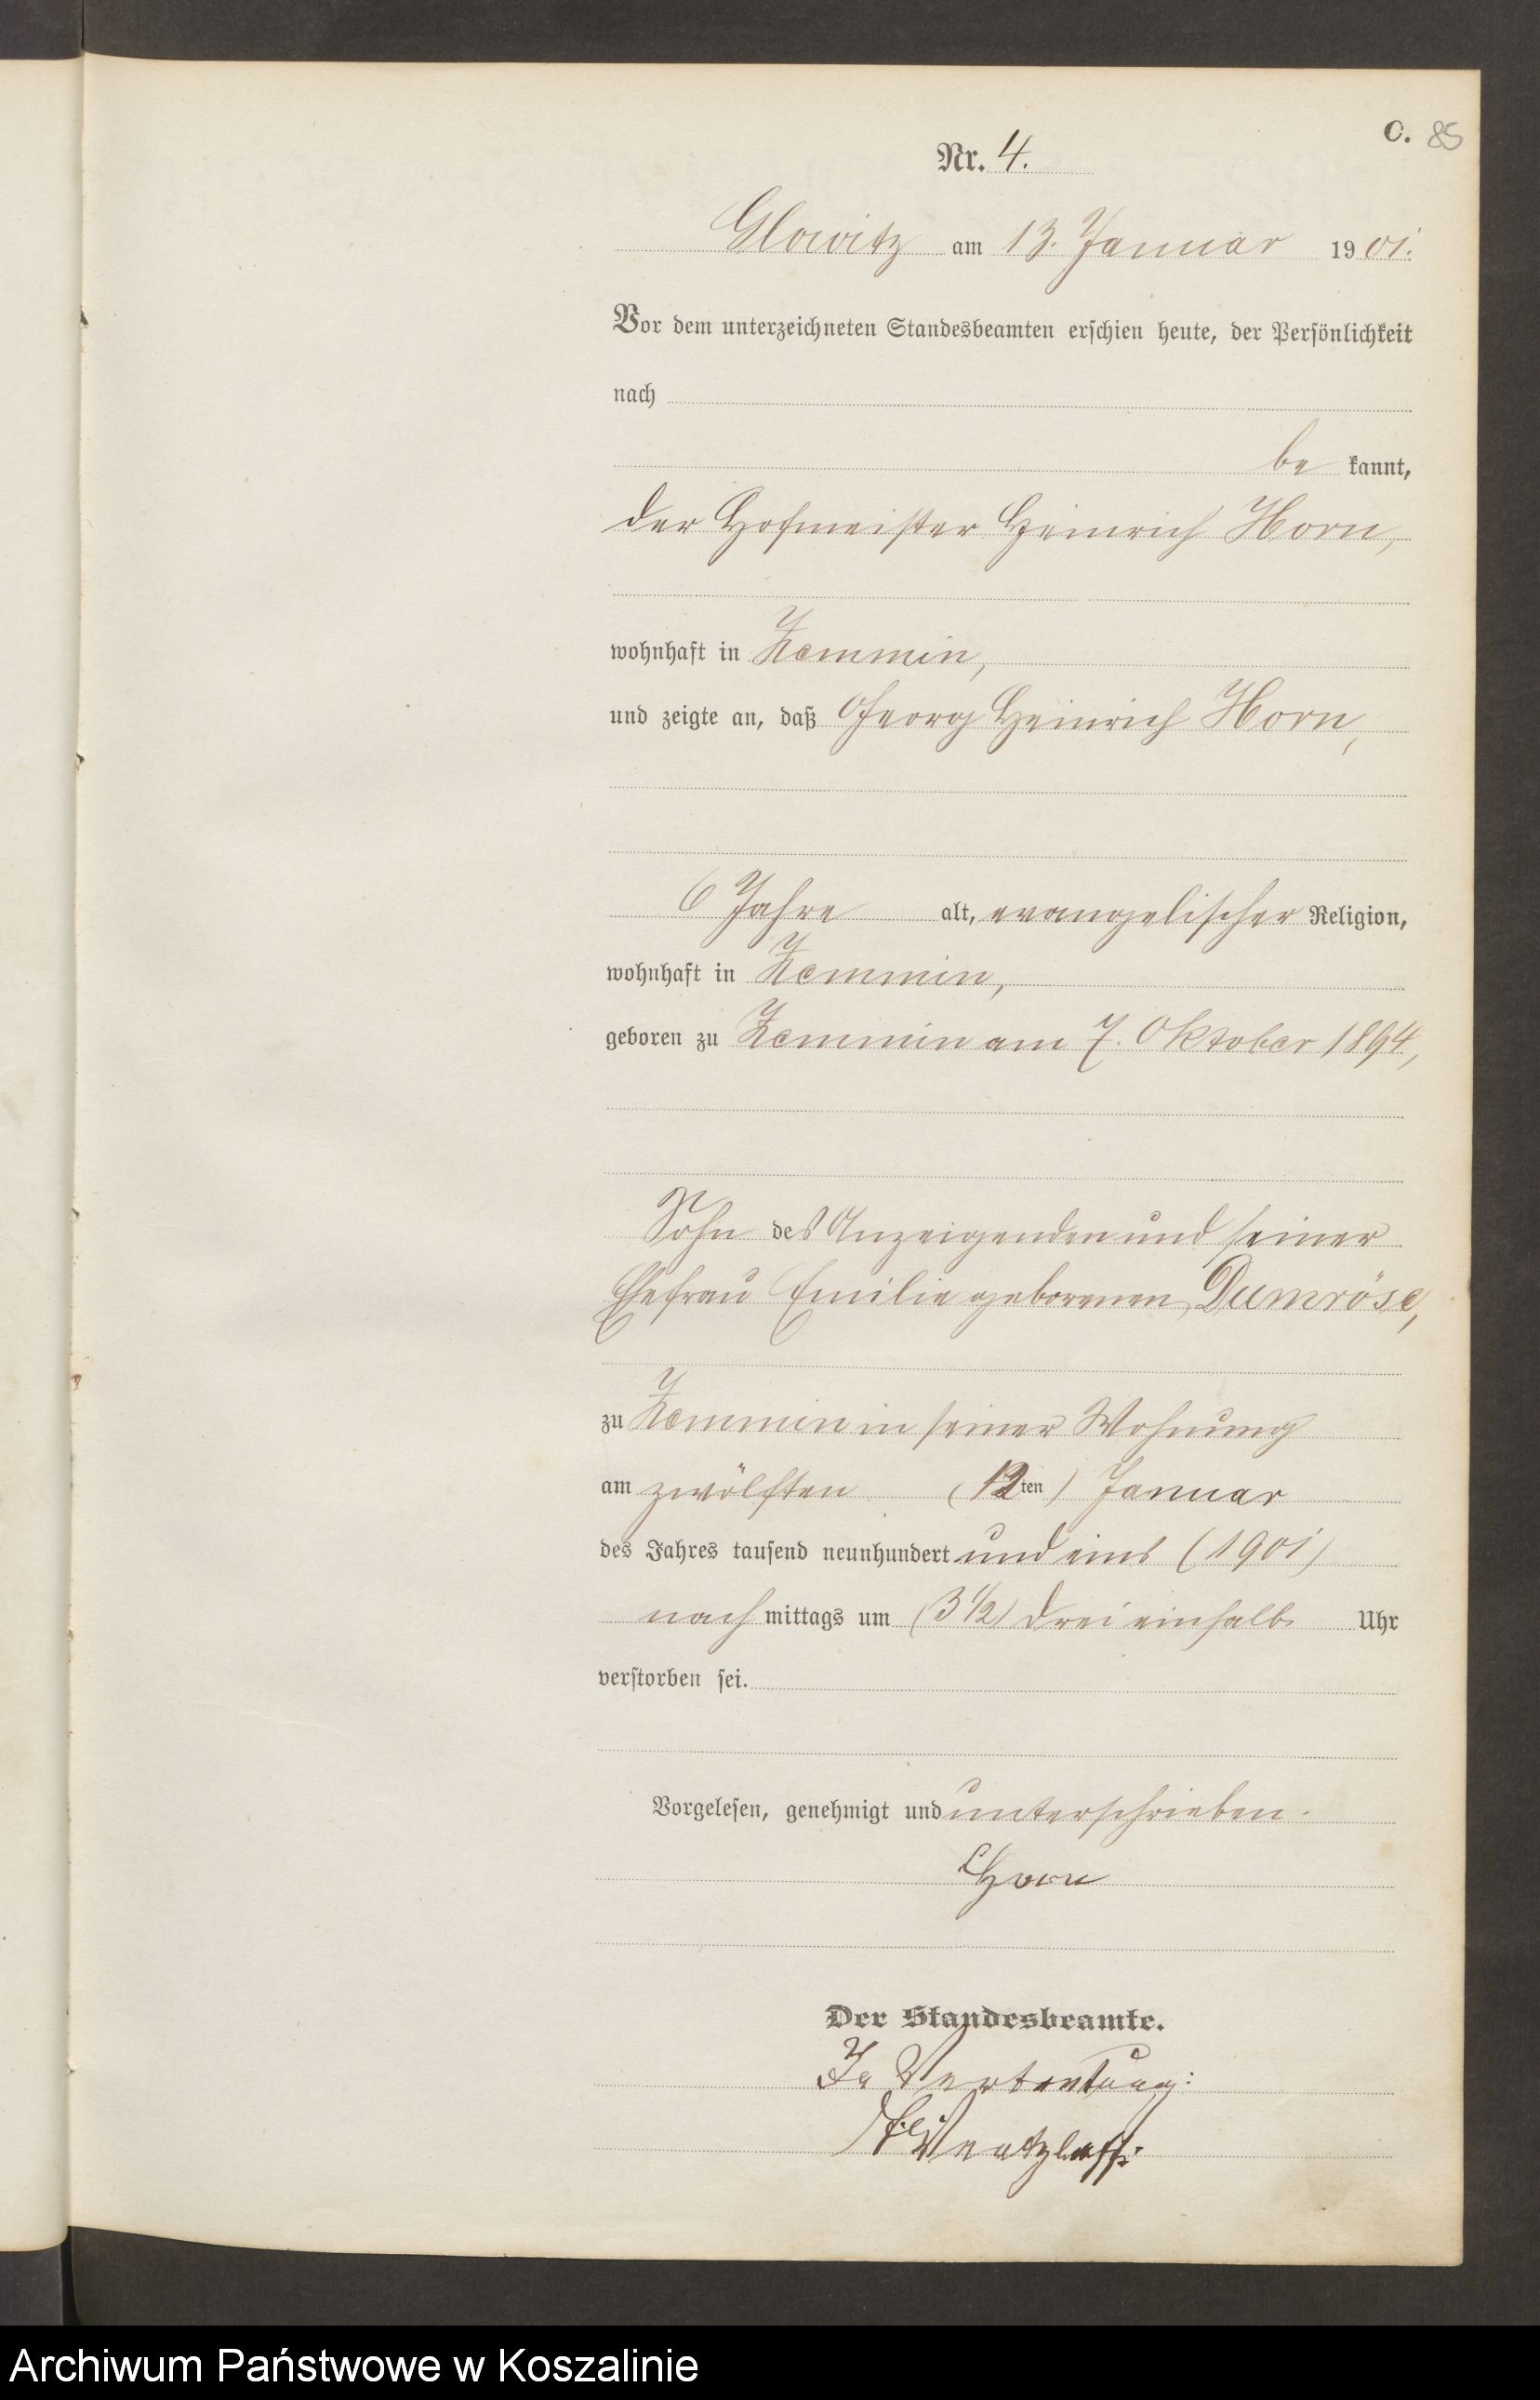 C. 85
Nr. 4.
Glowitz am 13. Januar 1901.
Vor dem unterzeichneten Standesbeamten erschien heute, der Persönlichkeit
nach
be kannt,
der Hofmeister Heinrich Horn,
wohnhaft in Zemmin,
und zeigte an, daß Georg Heinrich Horn,
6 Jahre alt, evangelischer Religion,
wohnhaft in Zemmin,
geboren zu Zemmin am 7. Oktober 1894,
Sohn des Anzeigenden und seiner
Ehefrau Emilie geborenen Dumröse,
zu Zemmin in seiner Wohnung
am zwölften (12ten) Januar
des Jahres tausend neunhundert und eins (1901)
nach mittags um (3 1/2) drei einhalb Uhr
verstorben sei.
Vorgelesen, genehmigt und unterschrieben.
Horn
Der Standesbeamte.
In Vertretung:
Ventzlaff.
Archiwum Państwowe w Koszalinie